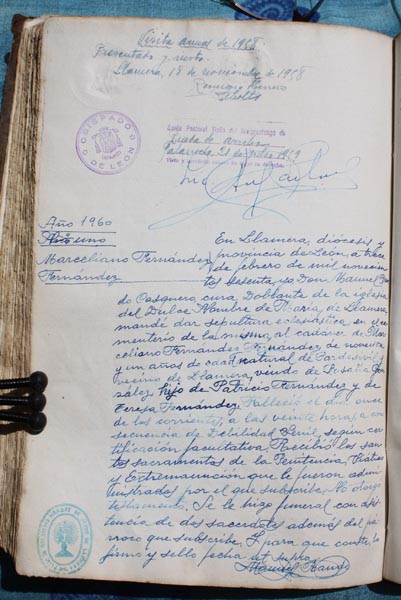 Visita anual de 1958
Presentado y visto.
Llamera, 18 de noviembre de 1958
OBISPADO DE LEON
Santa Pastoral Visita del Arciprestazgo de
de 1959
Año 1960
Nº uno
Marceliano Fernández
Fernández
En Llamera, diócesis y
provincia de León, a trece
de febrero de mil novecien-
tos sesenta, yo Don Manuel
do Casquero, cura Doblante de la iglesia
del Dulce Nombre de María de Llamera,
mandé dar sepultura eclesiástica en el ce-
menterio de la misma, al cadáver de Mar-
celiano Fernández Fernández, de noventa
y un años de edad, natural de Pardesivil y
vecino de Llamera, viudo de Rosalía Gon-
zález, hijo de Patricio Fernández y de
Teresa Fernández. Falleció el día once
de los corrientes, a las veinte horas, a con-
secuencia de Debilidad Senil, según cer-
tificación facultativa. Recibió los san-
tos sacramentos de la Penitencia, Viático
y Extremaunción que le fueron admi-
nistrados por el que subscribe. No otorgó
testamento. Se le hizo funeral con asis-
tencia de dos sacerdotes además del pá-
rroco que subscribe. Y para que conste, lo
firmo y sello fecha ut supra.